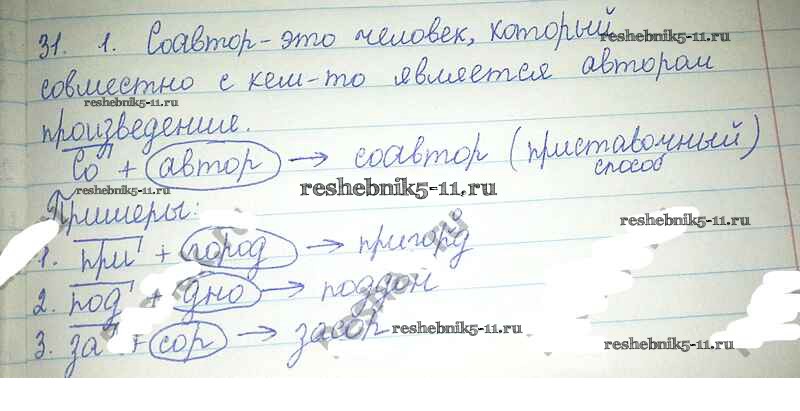 31. 1. Соавтор - это человек, который
reshebnik5-11.ru
совместно с кем-то является автором
reshebnik5-11.ru
произведения.
Со + автор → соавтор (приставочный)
способ
reshebnik5-11.ru
reshebnik5-11.ru
Примеры:
reshebnik5-11.ru
1. при + город → пригорд
о
2. под + дно → поддон
3. за + сор → засор
reshebnik5-11.ru
reshebnik5-11.ru